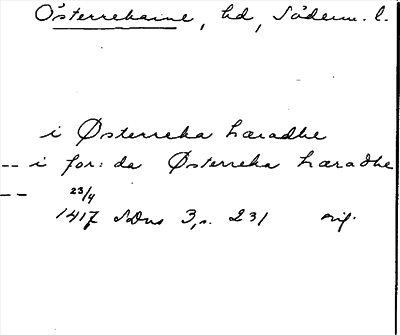 Österrekarne, hd, Söderm. l.
i Østerreka hæradhe
-- i for: da Østerreka hæradhe
-- 23/4
1417 SDns 3, s. 231 orig.